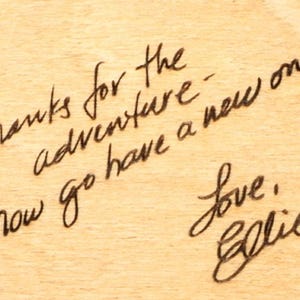 hanks for the
adventure -
now go have a new on
Love,
Ellie